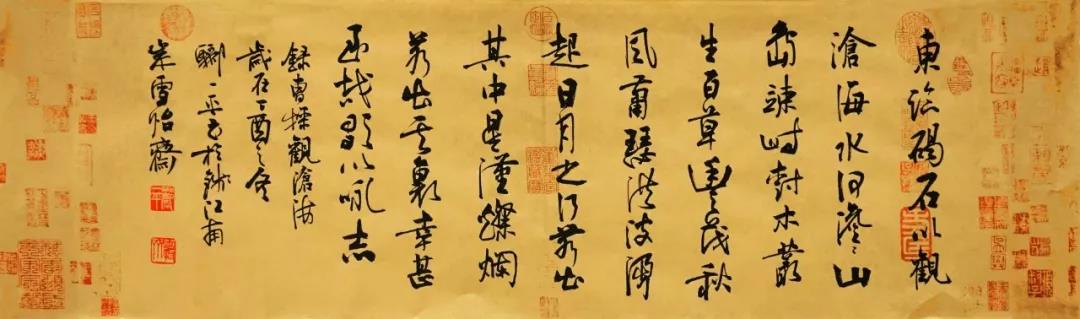 東臨碣石以觀
滄海水何澹〻山
島竦峙樹木叢
生百草豐茂秋
風蕭瑟洪波湧
起日月之行若出
其中星漢燦爛
若出其裏幸甚
至哉歌以咏志
錄曹操觀滄海
歲在丁酉之冬
一平書於錢江南
岸雪怡齋